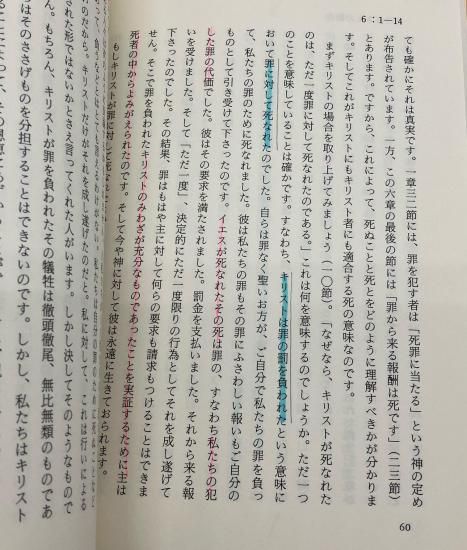 6：1―14
ても確かにそれは真実です。一章三二節には、罪を犯す者は「死罪に当たる」という神の定め
が布告されています。一方、この六章の最後の節には「罪から来る報酬は死です」（二三節）
とあります。ですから、これによって、死ぬことと死とをどのように理解すべきかが分かりま
す。そしてこれがキリストにもキリスト者にも適合する死の意味なのです。
まずキリストの場合を取り上げてみましょう（一〇節）。「なぜなら、キリストが死なれた
のは、ただ一度罪に対して死なれたのである。」これは何を意味するのでしょうか。ただ一つ
のことを意味していることは確かです。すなわち、キリストは罪の罰を負われたという意味に
おいて罪に対して死なれたのでした。自らは罪なく聖いお方が、ご自分で私たちの罪を負っ
て、私たちの罪のために死なれました。彼は私たちの罪もその罪にふさわしい報いもご自分の
ものとして引き受けて下さったのです。イエスが死なれたその死は罪の、すなわち私たちの犯
した罪の代価でした。彼はその要求を満たされました。罰金を支払いました。それから来る報
いを受けました。そして「ただ一度」、決定的にただ一度限りの行為としてそれを成し遂げて
下さったのでした。その結果、罪はもはや主に対して何らの要求も請求もつけることはできま
せん。そこで罪を負われたキリストのみわざが充分なものであったことを実証するために主は
死者の中からよみがえられたのです。そして今や神に対して彼は永遠に生きておられます。
もしキリストが罪に対して死なれた
60
された形ではないかとさえ言ってくれた人がいます。しかし決してそのようなもので
ん。もちろん、キリストが罪を負われたその犠牲は徹頭徹尾、無比無類のものであ
はそのささげものを分担することはできないのです。しかし、私たちはキリスト